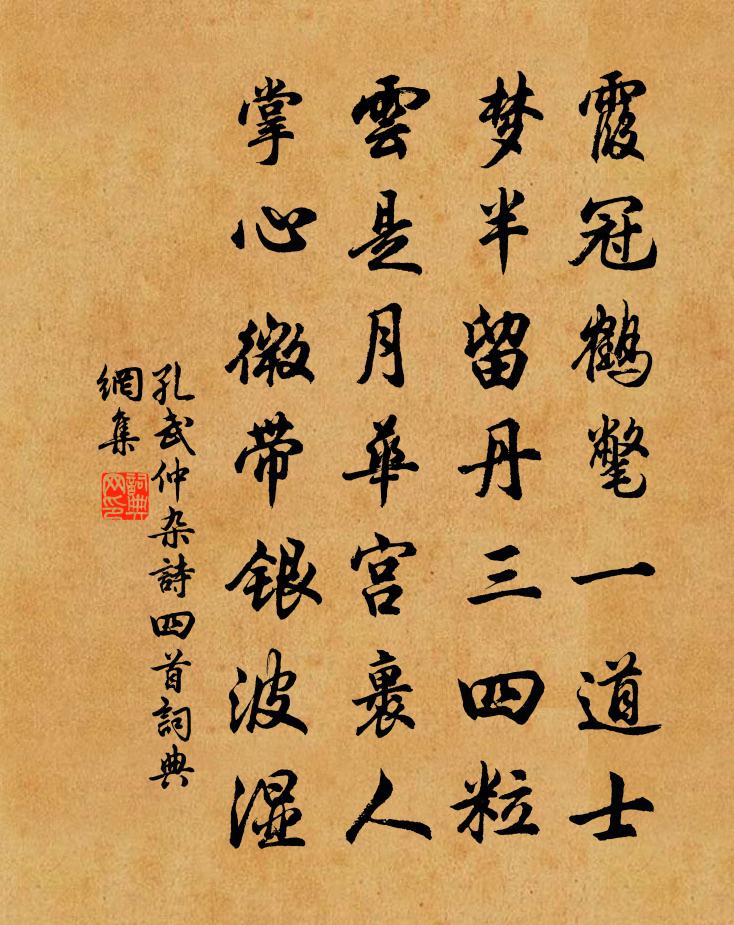 霞冠鶴氅一道士
梦半留丹三四粒
雲是月華宫裏人
掌心微带银波湿
孔武仲杂詩四首詞典
網集
詞典
网印